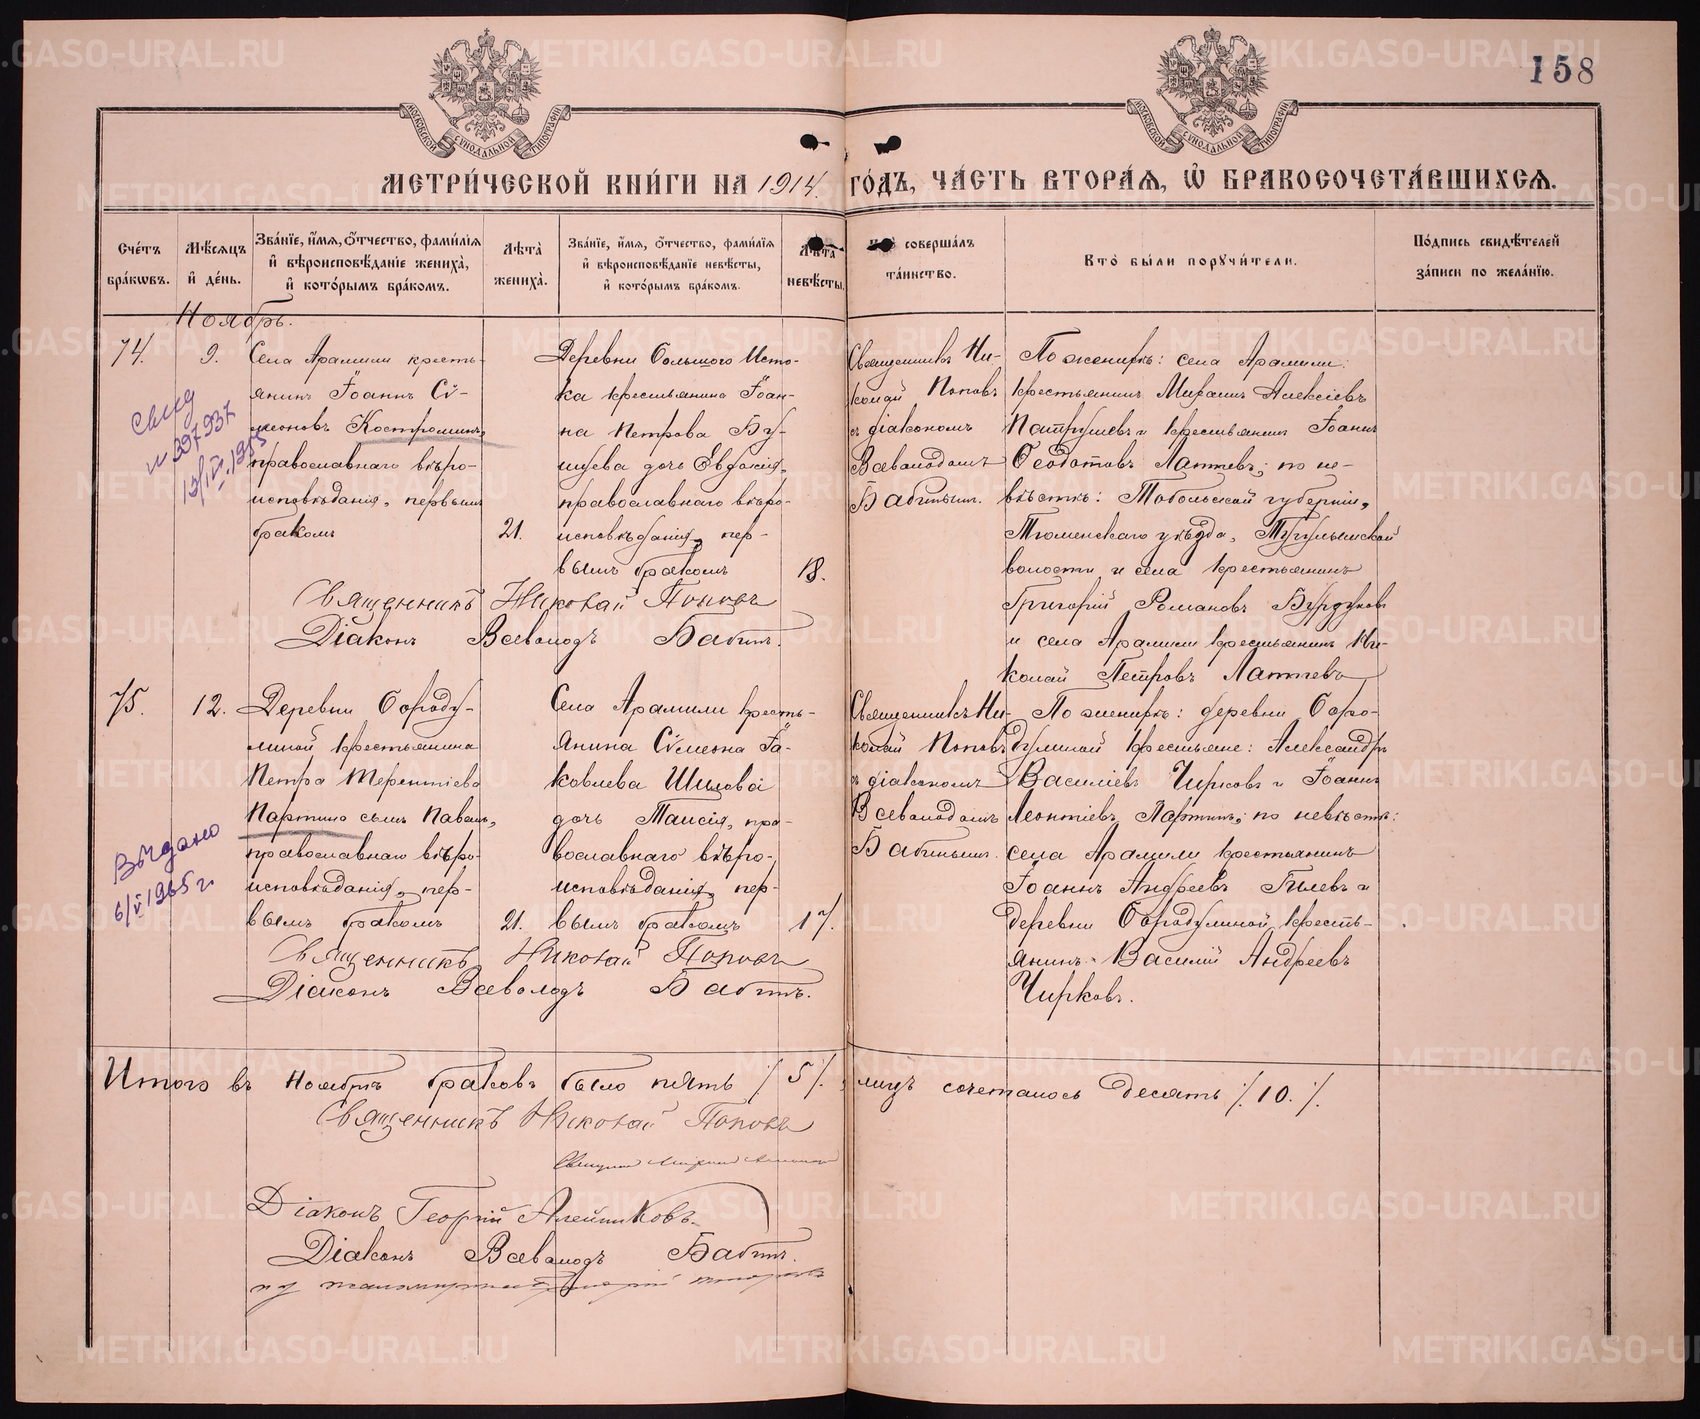 158
МОСКОВСКОЙ СУНОДАЛЬНОЙ ТИПОГРАФІИ
МОСКОВСКОЙ СУНОДАЛЬНОЙ ТИПОГРАФІИ
МЕТРИ́ЧЕСКОЙ КНИ́ГИ НА 1914 ГО́ДЪ, ЧА́СТЬ ВТОРА́Ѧ, Ѡ҆ БРАКОСОЧЕТА́ВШИХСѦ.
Сче́тъ бра́кѡвъ.
Мѣ́сѧцъ и҆ де́нь.
Зва́нїе, и҆́мѧ, ѻ҆́тчество, фами́лїѧ и҆ вѣроисповѣ́данїе жениха̀, и҆ кото́рымъ бра́комъ.
Лѣ́та̀ жениха̀.
Зва́нїе, и҆́мѧ, ѻ҆́тчество, фами́лїѧ и҆ вѣроисповѣ́данїе невѣ́сты, и҆ кото́рымъ бра́комъ.
Лѣ́та̀ невѣ́сты.
совершалъ та́инство.
Кто̀ бы́ли порꙋчи́тели.
По́дпись свидѣ́телей за́писи по жела́нїю.
Ноябрь.
74.
9.
Села Арамили кресть-
янинъ Іоаннъ Сѵ-
меоновъ Костроминъ,
православнаго вѣро-
исповѣданія, первымъ
бракомъ
21.
Деревни Большого Исто-
ка крестьянина Іоан-
на Петрова Бу-
шуева дочь Евдокія,
православнаго вѣро-
исповѣданія, пер-
вымъ бракомъ
18.
Священникъ Ни-
колай Поповъ
съ діакономъ
Всеволодомъ
Бабинымъ.
По женихѣ: села Арамили
крестьянинъ Михаилъ Алексѣевъ
Патрушевъ и крестьянинъ Іоаннъ
Ѳеодотовъ Лаптевъ; по не-
вѣстѣ: Тобольской губерніи,
Тюменскаго уѣзда,
волости и села крестьянинъ
Григорій Романовъ
и села Арамили крестьянинъ Ни-
колай Петровъ Лаптевъ
Священникъ Николай Поповъ
Діаконъ Всеволодъ Бабинъ.
75.
12.
Деревни Бороду-
линой крестьянина
Петра Терентіева
Партина сынъ Павелъ,
православнаго вѣро-
исповѣданія, пер-
вымъ бракомъ
21.
Села Арамили кресть-
янина Сѵмеона Іа-
ковлева Шилова
дочь Таисія, пра-
вославнаго вѣро-
исповѣданія, пер-
вымъ бракомъ
17.
Священникъ Ни-
колай Поповъ
съ діакономъ
Всеволодомъ
Бабинымъ.
По женихѣ: деревни Боро-
дулиной крестьяне: Александръ
Василіевъ Чирковъ и Іоаннъ
Леонтіевъ Партинъ; по невѣстѣ:
села Арамили крестьянинъ
Іоаннъ Андреевъ Гилевъ и
деревни Бородулиной кресть-
янинъ Василій Андреевъ
Чирковъ.
Священникъ Николай Поповъ
Діаконъ Всеволодъ Бабинъ.
Выдано
6/V 1965 г.
Итого въ Ноябрѣ браковъ было пять /5/, лицъ сочеталось десять /10./
Священникъ Николай Поповъ
Діаконъ Георгій Алейниковъ
Діаконъ Всеволодъ Бабинъ.
METRIKI.GASO-URAL.RU